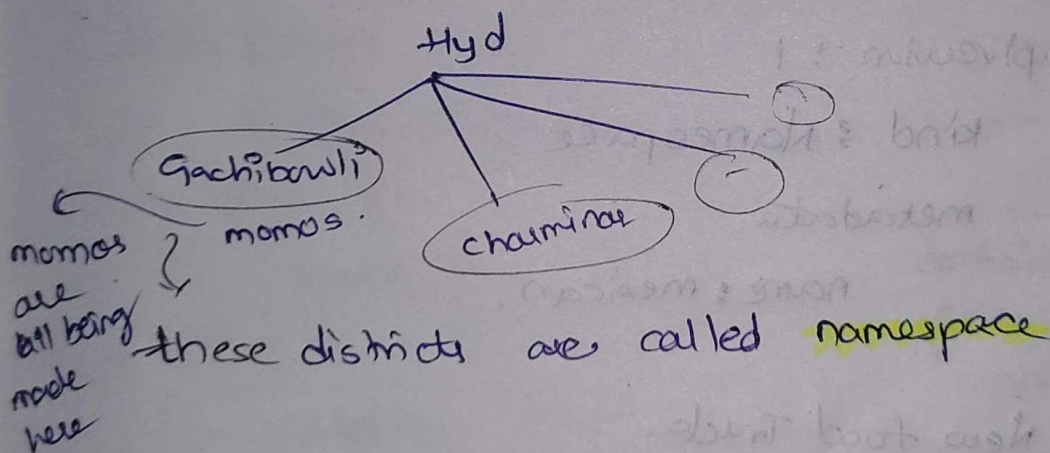 Hyd
Gachibowli
charminar
-
momos.
momos
are
all being
made
here
these districts are called namespace